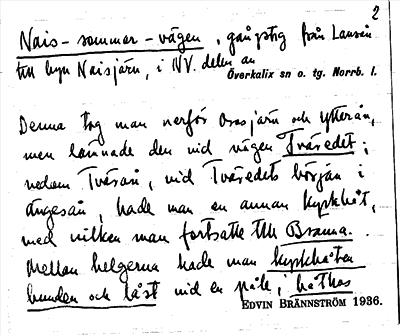 2
Nais-sommar-vägen, gångstig från Lansån
till byn Naisjärv, i NV. delen av
Överkalix sn o. tg. Norrb. l.
Denna tog man nerför Orrsjärv och Ytterån,
men lämnade den vid vägen Tväredet;
nedom Tvärån, vid Tväredets början i
Ängesån, hade man en annan kyrkbåt,
med vilken man fortsatte till Bränna.
Mellan helgerna hade man kyrkbåten
bunden och låst vid en påle, i båthus
EDVIN BRÄNNSTRÖM 1936.